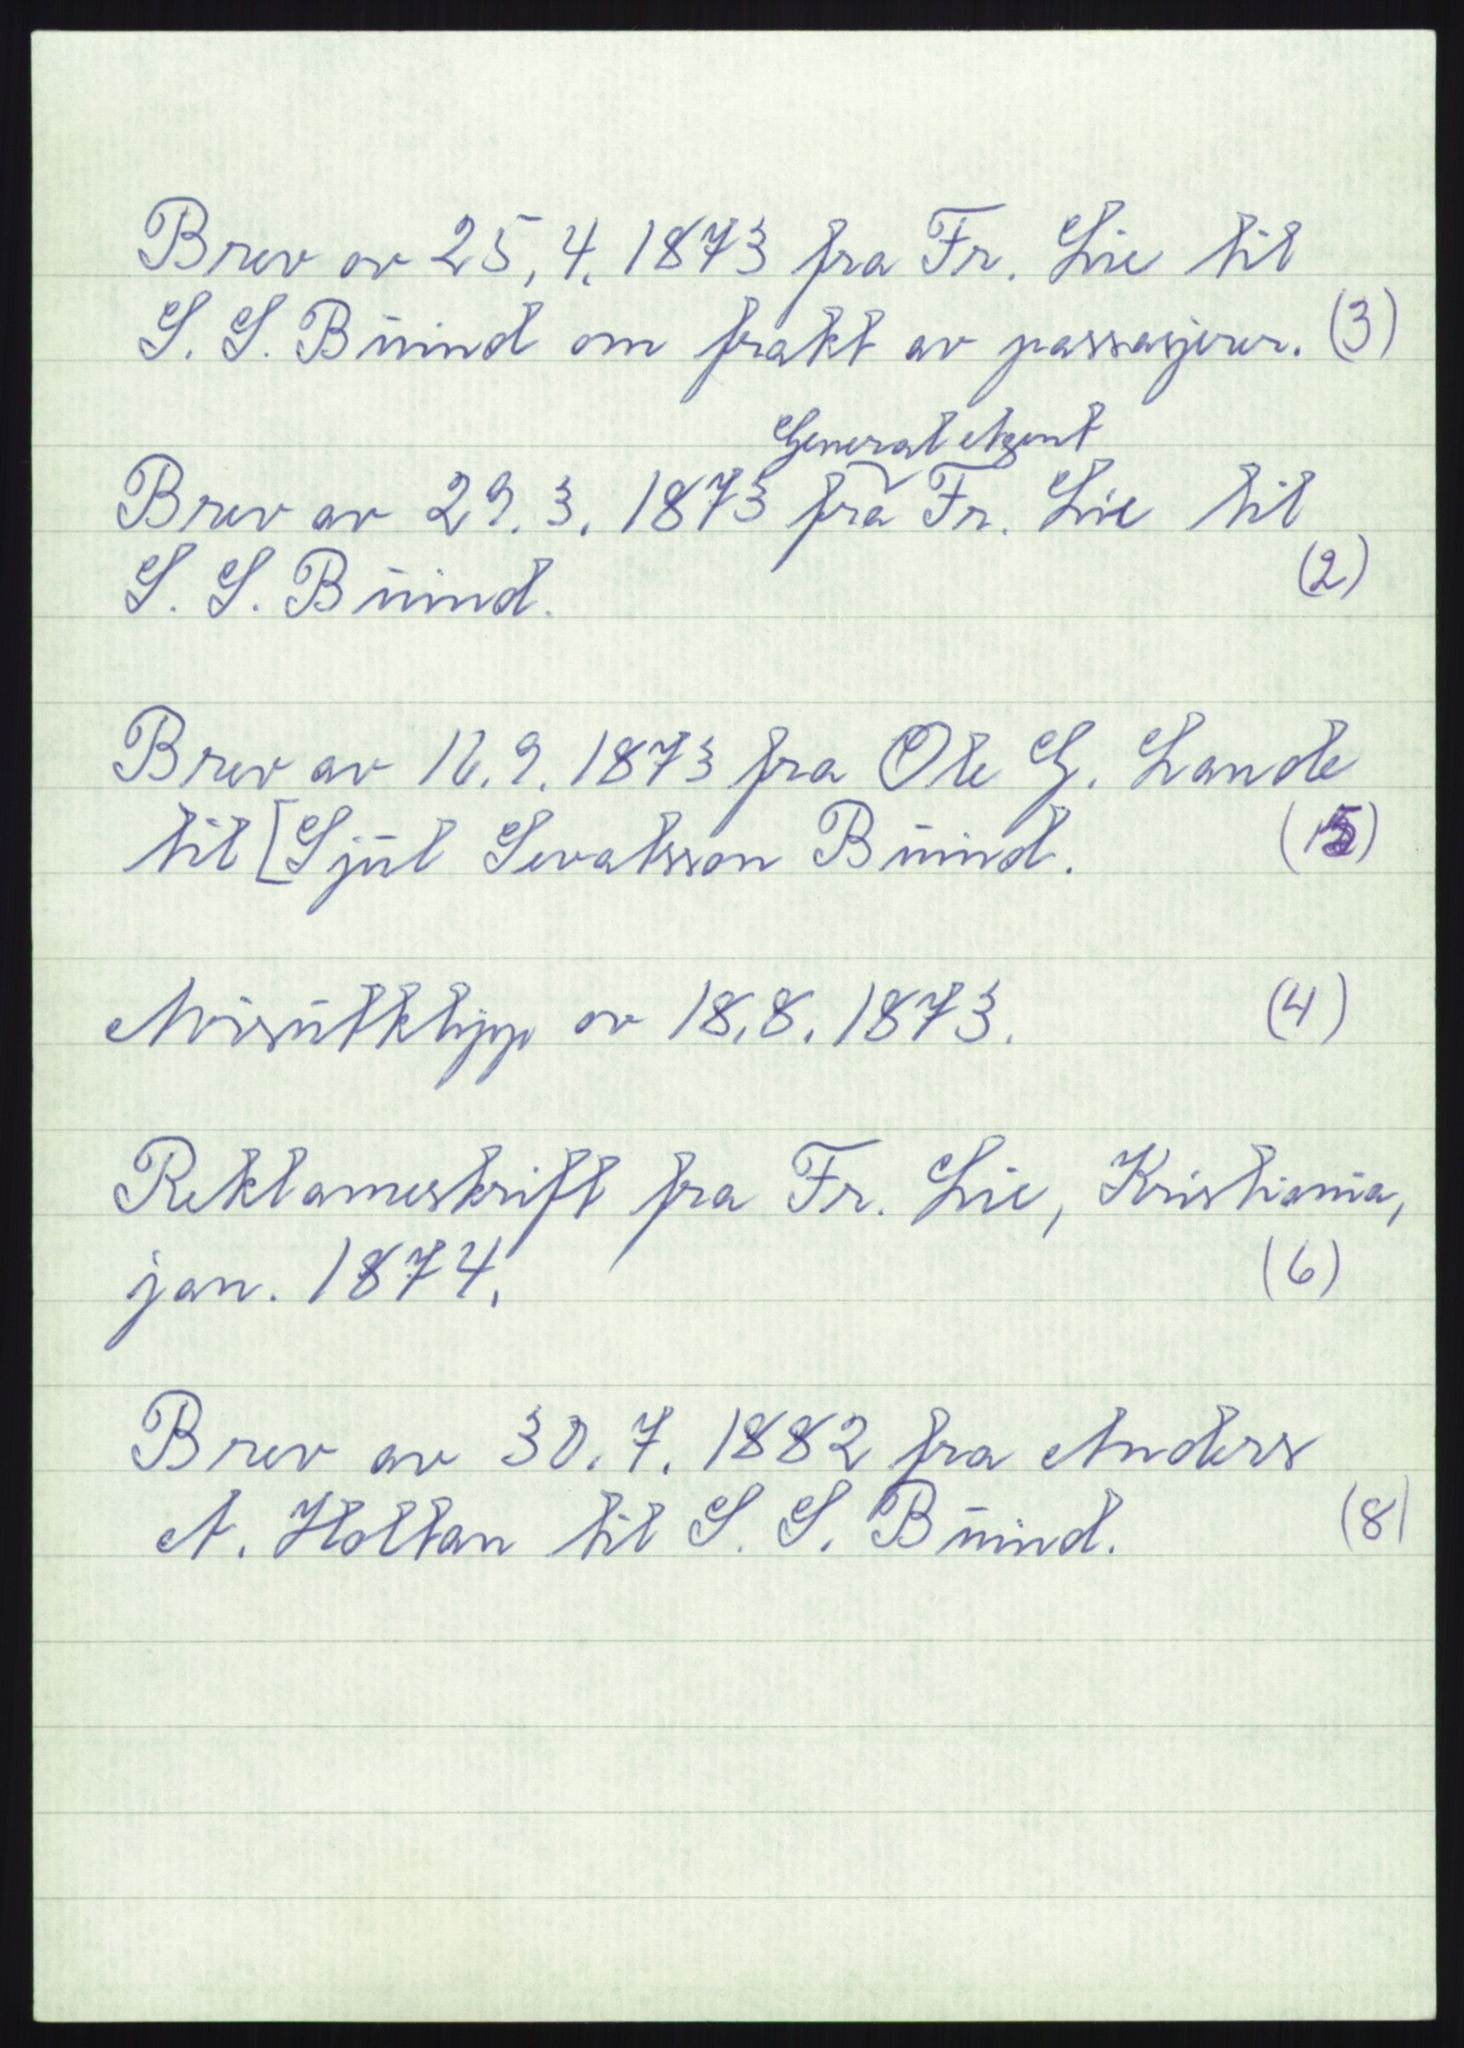 Brev av 25.4.1873 fra Fr. Lie til
S. S. Buind om frakt av passasjerer. (3)
General Agent
Brev av 29.3.1873 fra Fr. Lie til
S. S. Buind. (2)
Brev av 16.9.1873 fra Ole G. Lande
til [Sjul Sevatsson Buind. (5)
Avisutklipp av 18.8.1873. (4)
Reklameskrift fra Fr. Lie, Kristiania,
jan. 1874. (6)
Brev av 30.7.1882 fra Anders
A. Holtan til S. S. Buind. (8)